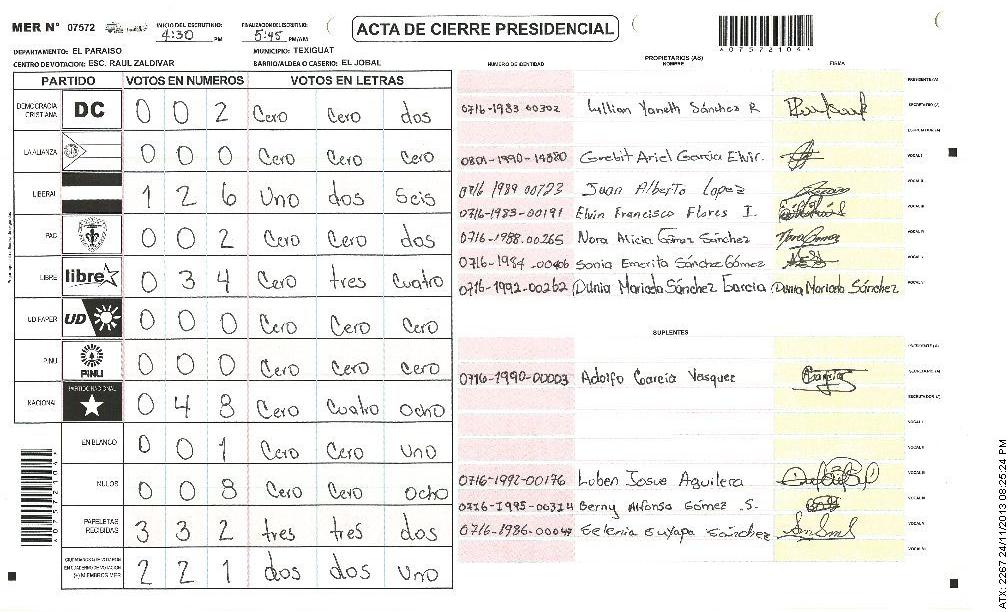 MER N° 07572 INICIO DEL ESCRUTINIO: 4:30 PM FINALIZACION ESCRUTINIO: 5:45 PM/AM
ACTA DE CIERRE PRESIDENCIAL
*07572104*
DEPARTAMENTO: EL PARAISO MUNICIPIO: TEXIGUAT
CENTRO DE VOTACION: ESC. RAUL ZALDIVAR BARRIO/ALDEA O CASERIO: EL JOBAL
PARTIDO VOTOS EN NUMEROS VOTOS EN LETRAS
DEMOCRACIA CRISTIANA DC 0 0 2 Cero Cero dos
LA ALIANZA 0 0 0 Cero Cero Cero
LIBERAL 1 2 6 Uno dos Seis
PAC 0 0 2 Cero Cero dos
LIBRE libre 0 3 4 Cero tres Cuatro
UD FAPER UD 0 0 0 Cero Cero Cero
PINU PINU 0 0 0 Cero Cero Cero
NACIONAL PARTIDO NACIONAL 0 4 8 Cero Cuatro Ocho
EN BLANCO 0 0 1 Cero Cero Uno
NULOS 0 0 8 Cero Cero Ocho
PAPELETAS RECIBIDAS 3 3 2 tres tres dos
2 2 1 dos dos Uno
*07572104*
PROPIETARIOS (AS)
NUMERO DE IDENTIDAD NOMBRE FIRMA
PRESIDENTE (A)
0716-1983 00302 Lillian Yaneth Sánchez R SECRETARIO (A)
ESCRUTADOR (A)
0801-1990-14880 Grebit Ariel Garcia Elvir. VOCAL I
0716 1989 00723 Juan Alberto Lopez VOCAL II
0716-1983-00191 Elvin Francisco Flores I. VOCAL III
0716-1988-00265 Nora Alicia Gómez Sánchez VOCAL IV
0716-1984-00406 Sonia Emerita Sánchez Gómez VOCAL V
0716-1992-00262 Dunia Maricela Sánchez Garcia Dunia Maricela Sánchez VOCAL VI
SUPLENTES
PRESIDENTE (A)
0716-1990-00003 Adolfo Garcia Vasquez SECRETARIO (A)
ESCRUTADOR (A)
VOCAL I
VOCAL II
0716-1992-00176 Luben Josue Aguilera VOCAL III
0716-1995-00314 Berny Alfonso Gómez .S. VOCAL IV
0716-1986-00047 Selenia Suyapa Sánchez VOCAL V
VOCAL VI
ATX: 2267 24/11/2013 08:25:24 PM